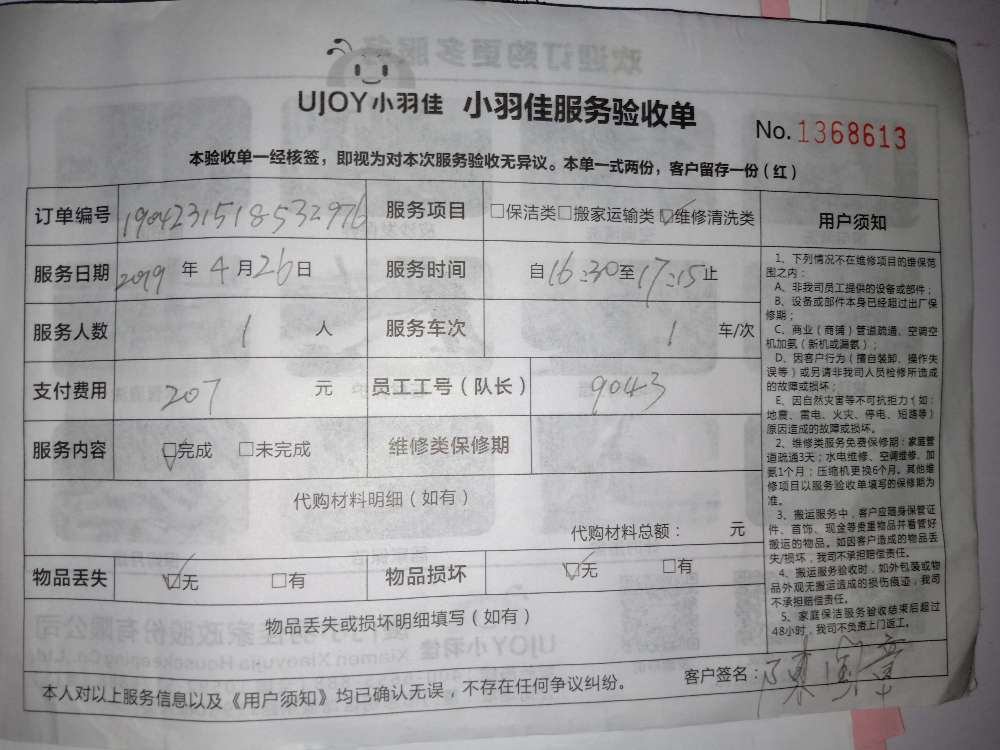 UJOY小羽佳 小羽佳服务验收单
No. 1368613
本验收单一经核签，即视为对本次服务验收无异议。本单一式两份，客户留存一份（红）
订单编号 1904231518532976 服务项目 □保洁类□搬家运输类☑维修清洗类
服务日期 2019 年 4 月 26 日 服务时间 自16:30至17:15止
服务人数 1 人 服务车次 1 车/次
支付费用 207 元 员工工号（队长） 9043
服务内容 ☑完成 □未完成 维修类保修期
代购材料明细（如有）
代购材料总额： 元
物品丢失 ☑无 □有 物品损坏 ☑无 □有
物品丢失或损坏明细填写（如有）
本人对以上服务信息以及《用户须知》均已确认无误，不存在任何争议纠纷。
客户签名：陈
用户须知
1、下列情况不在维修项目的维保范
围之内：
A、非我司员工提供的设备或部件；
B、设备或部件本身已经超过出厂保
修期；
C、商业（商铺）管道疏通、空调空
机加氨（新机或漏氨）；
D、因客户行为（擅自装卸、操作失
误等）或另请非我司人员检修所造成
的故障或损坏；
E、因自然灾害等不可抗拒力（如：
地震、雷电、火灾、停电、短路等）
原因造成的故障或损坏。
2、维修类服务免费保修期：家庭管
道疏通3天；水电维修、空调维修、加
氨1个月；压缩机更换6个月。其他维
修项目以服务验收单填写的保修期为
准。
3、搬运服务中，客户应随身保管证
件、首饰、现金等贵重物品并看管好
搬运的物品。如因客户造成的物品丢
失/损坏，我司不承担赔偿责任。
4、搬运服务验收时，如外包装或物
品外观无搬运造成的损伤痕迹，我司
不承担赔偿责任。
5、家庭保洁服务验收结束后超过
48小时，我司不负责上门返工。